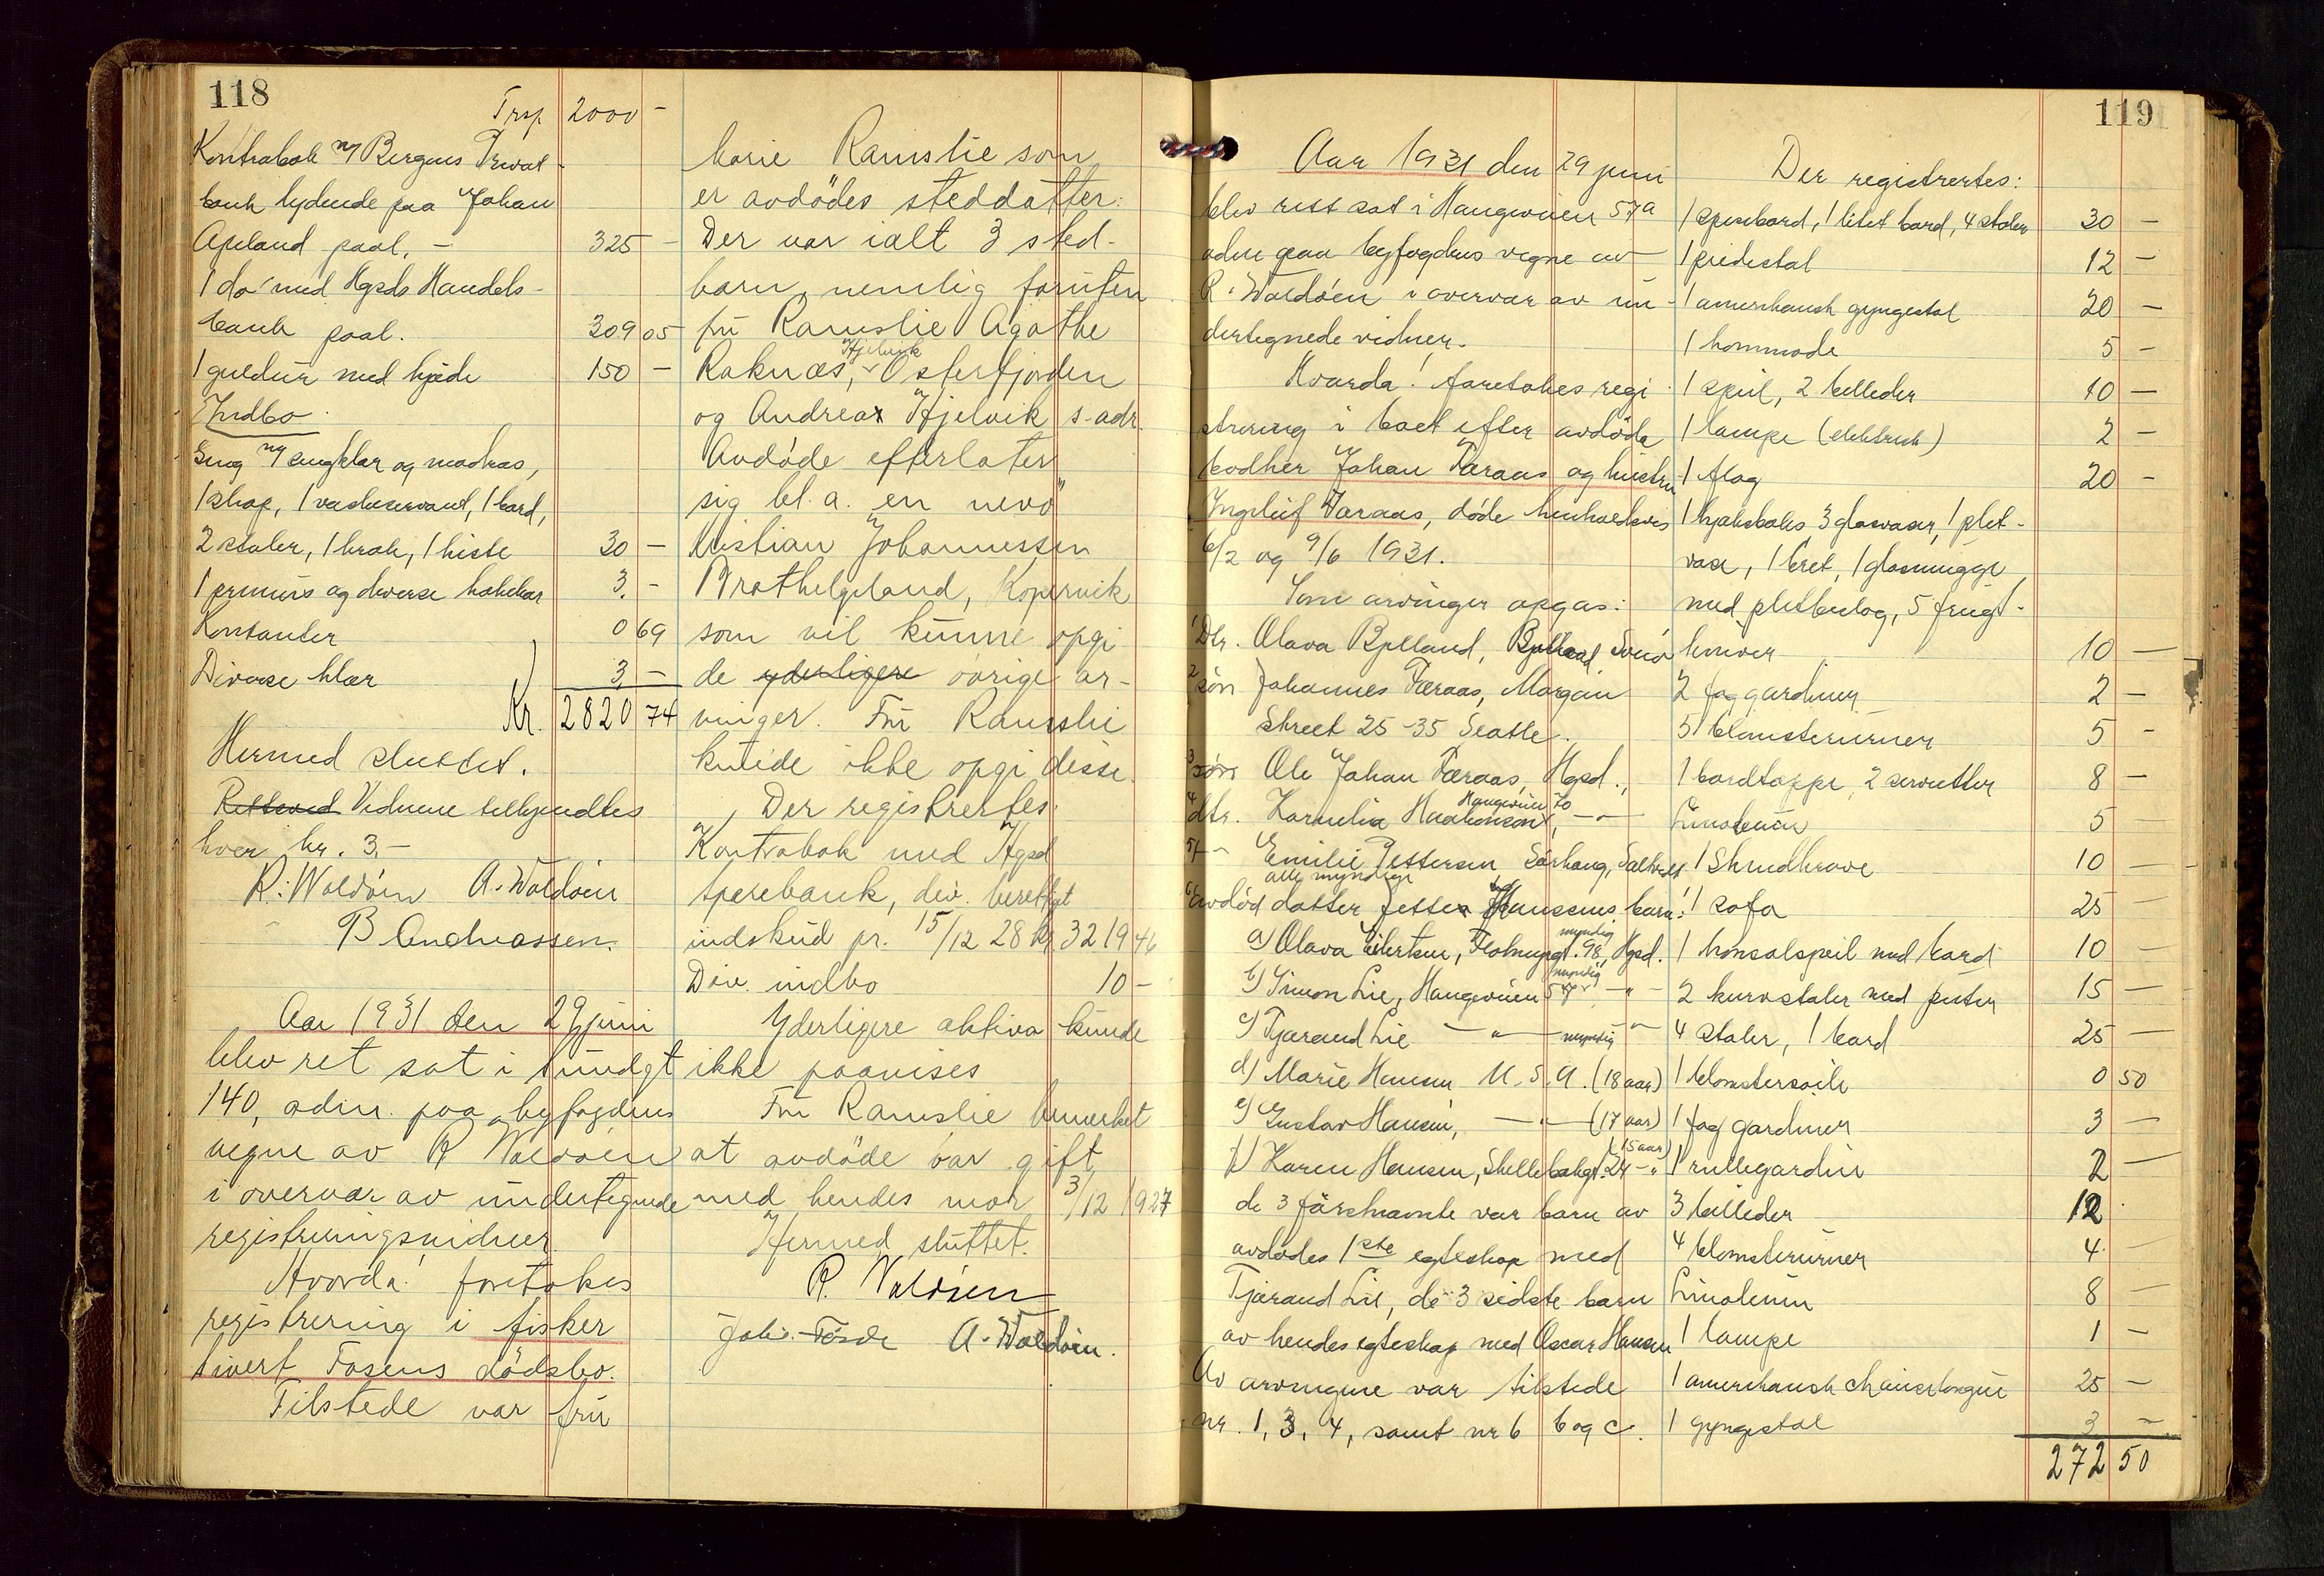 118
Trsp 2000 -
Kontrabok m/ Bergens Privat-
bank lydende paa Johan
Apeland paal. - 325 -
1 do med Hgsds Handels-
bank paal. 309 05
1 guldur med kjede 150 -
Indbo.
Seng m/ sengklær og madras,
1 skap, 1 vaskeservant, 1 bord,
2 stoler, 1 krak, 1 kiste 30 -
1 primus og diverse kokekar 3. -
Kontanter 0 69
Diverse klær 3, -
Kr. 2820 74
Hermed sluttet.
Rettsved Vidnene tilkjendtes
hver kr. 3,-
R. Waldøen A. Waldøen
B Andreassen.
Aar 1931 den 29 juni
blev ret sat i Sundgt
140, adm. paa byfogdens
vegne av R Waldøen
i overvær av undertegnede
registreringsvidner.
Hvorda! foretokes
registrering i fisker
Sivert Fosens dödsbo.
Tilstede var fru
Marie Ramslie som
er avdödes steddatter.
Der var ialt 3 sted-
barn, nemlig foruten
fru Ramslie Agathe
Hjelvik
Raknæs, Osterfjorden
og Andreas Hjelvik s. adr.
Avdöde efterlater
sig bl. a. en nevö
Kristian Johannessen
Nrothelgeland, Kopervik
som vil kunne opgi-
de yderligere övrige ar-
vinger. Fru Ramslie
kunde ikke opgi disse.
Der registrertes:
Kontrabok med Hgsd
Sparebank, div. berettiget
indskud pr. 15/12 28 kr. 3219 46
Div. indbo 10 -
Yderligere aktiva kunde
ikke paavises
Fru Ramslie bemerket
at avdöde var gift
med hendes mor 3/12 1927
Hermed sluttet.
R. Waldøen
Johs. Fosse A. Waldøen.
119
Aar 1931 den 29 juni
blev rett sat i Haugeveien 57a
adm paa byfogdens vegne av
R. Waldöen i overvær av un-
dertegnede vidner.
Hvorda! foretokes regi-
strering i boet efter avdöde
bødker Johan Færaas og hustru
Ingeleif Færaas, døde henholdsvis
6/2 og 9/6 1931.
Som arvinger opgas:
1 Dtr. Olava Bjelland, Bjelland, Sveio
2 søn Johannes Færaas, Morgan
Street 25-35 Seatle.
3 søn Ole Johan Færaas, Hgsd.,
Haugeveien 70
4 dtr. Kornelia Haakonsen, - " -
5 - " - Emilie Pettersen, Sørhaug, Salhus
alle myndige
6 avdød datter Jette Hansens barn:
myndig
a) Olava Eilertsen, Flotmyrgt. 98, Hgsd.
myndig
b) Simon Lie, Haugeveien 57 - " -
c) Tjærand Lie - " - myndig "
d) Marie Hansen U.S.A. (18 aar)
e) Gustav Hansen, - " - (17 aar)
(15 aar)
f) Karen Hansen, Skillebækgt. 24 - "
de 3 førstnævnte var barn av
avdødes 1ste egteskap med
Tjærand Lie, de 3 sidste barn
av hendes egteskap med Oscar Hansen
Av arvingene var tilstede
nr. 1, 3, 4, samt nr 6 b og c.
Der registrertes:
1 spisebord, 1 litet bord, 4 stoler 30 -
1 pidestal 12 -
1 amerikansk gyngestol 20 -
1 kommode 5 -
1 speil, 2 billeder 10 -
1 lampe (elektrisk) 2 -
1 flag 20 -
1 kjeksboks 3 glasvaser, 1 plet-
vase, 1 bret, 1 glasmugge
med pletbeslag, 5 frugt-
kniver 10 -
2 fag gardiner 2 -
5 blomsterurner 5 -
1 bordtæppe, 2 servietter 8 -
Linoleum 5 -
1 Skindkrave 10 -
1 sofa 25 -
1 konsolspeil med bord 10 -
2 kurvstoler med puter 15 -
4 stoler, 1 bord 25 -
1 blomstersøile 0 50
1 fag gardiner 3 -
1 rullegardin 2 -
3 billeder 12
4 blomsterurner 4 -
Linoleum 8 -
1 lampe 1 -
1 amerikansk chaiselongue 25 -
1 gyngestol 3 -
272 50